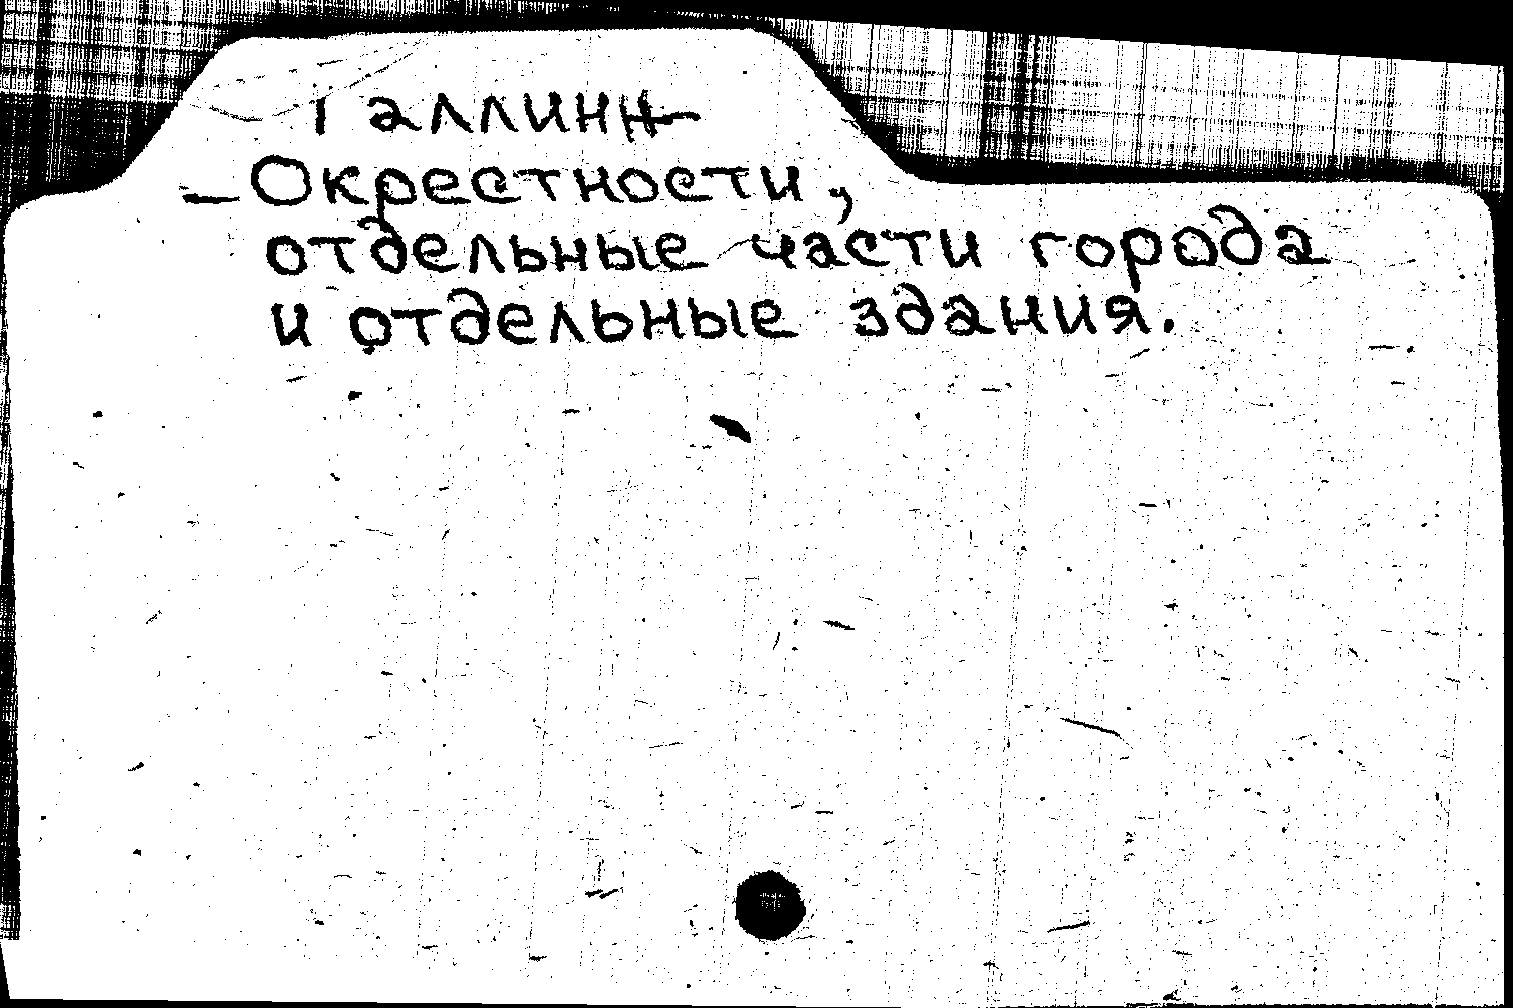 Таллин
—Окрестности,
отдельные части города
и отдельные здания.